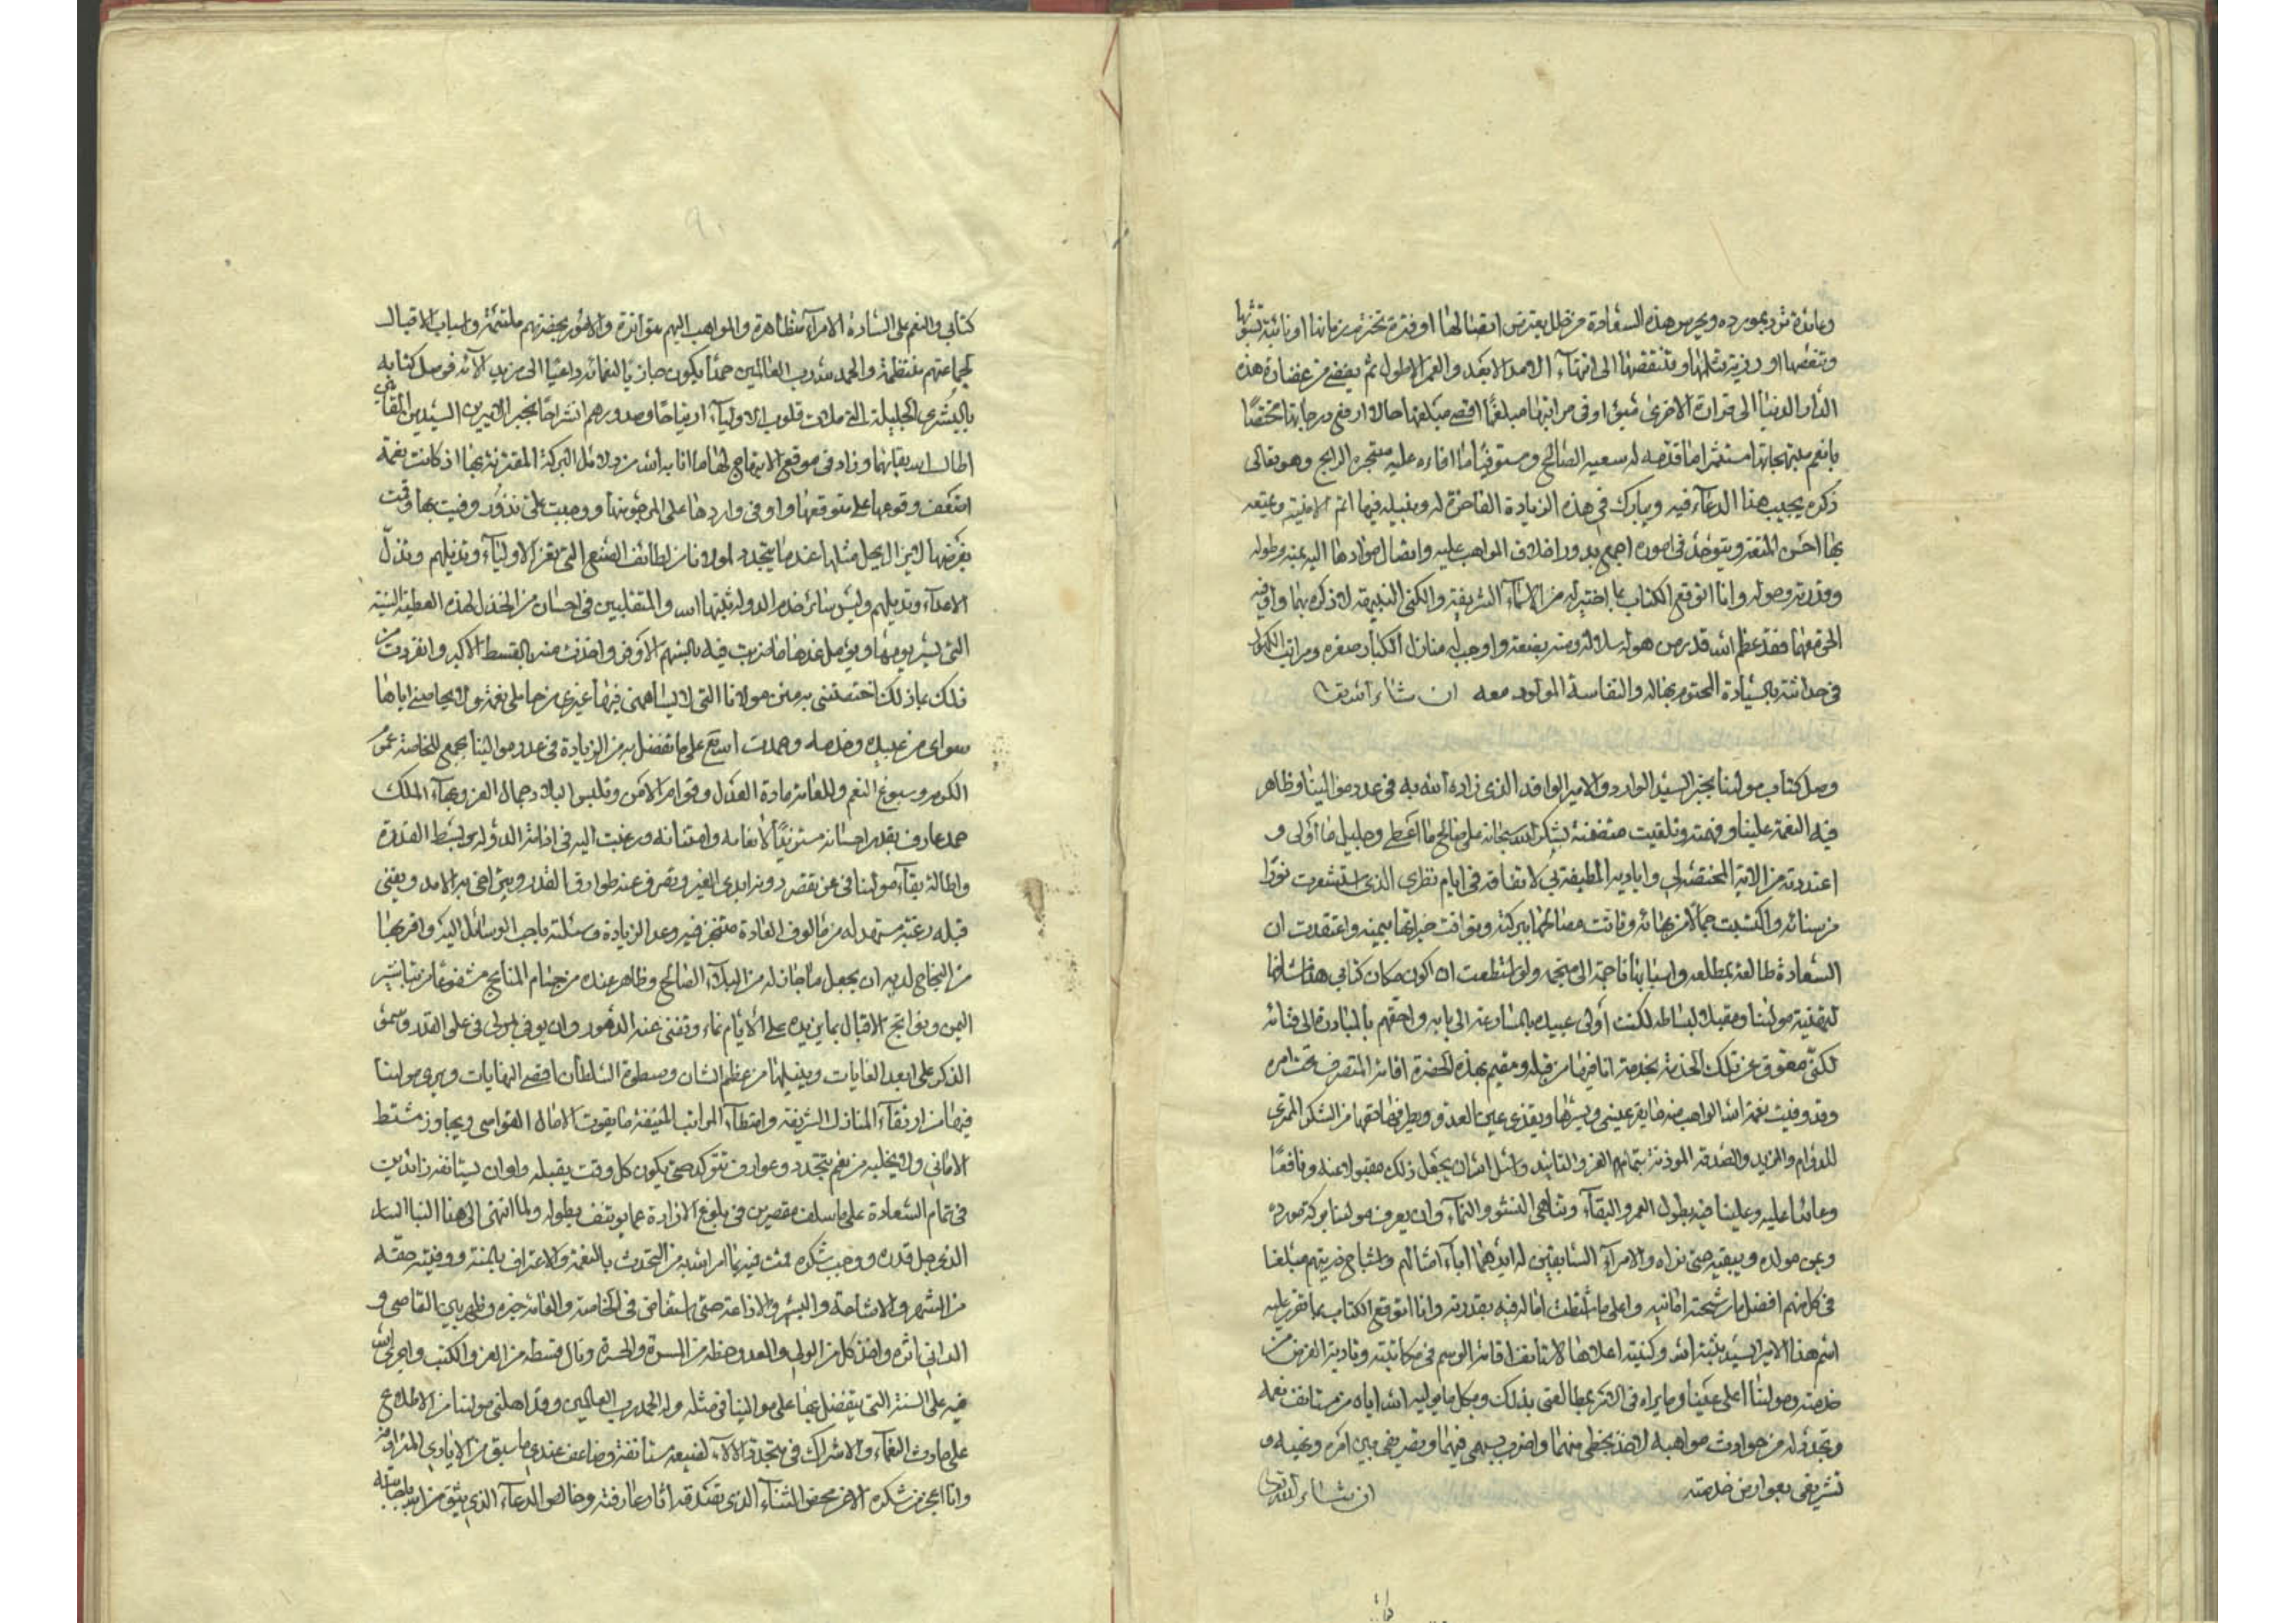 وعائدة تزد بمورده ويحرس هذه السعادة من خلل يعترض اتصالها او فترة تخترم زمانها او نائبة تشوبها
وتنغصها او رزية تثلمها وتنتقصها الى انتهاء الامد الابعد والعمر الاطول ثم يفضي من غضارة هذه
الدار الدنيا الى قرارة الاخرى اوفى مراتبها مبلغا اقصى مبلغها حالا ارفع درجاتها مختصا
بانعم مستثمرا ما قدمه له سعيه الصالح ومستوفيا ما افاءه عليه متجره الرابح وهو تعالى
ذكره يجيب هذا الدعاء فيه ويبارك في هذه الزيادة الفاخرة له وينيله فيها اتم الامنية ويمتعه
بها احسن المتعة ويتوحد في اموره اجمع بدرور اخلاف المواهب عليه واتصال موادها اليه بمنه وطوله
وقدرته وحوله وانا اتوقع الكتاب بما اختير له من الاسماء الشريفة والكنى النبيهة لاذكره بهما واوفيه
الحق معهما فقد عظم الله قدر من هو له سلالة ومنه بضعة واوجب له منازل الكبار صغره ومراتب الكهول
في حداثته بالسيادة المحتوم بها له والنفاسة المولود معه ان شاء الله تعالى
وصل كتاب مولينا بخبر السيد الوارد والامير الوافد الذي زاده الله به في عدد موالينا وظاهر
فيه النعمة علينا وفهمته وتلقيت متضمنه بشكر الله سبحانه على صالح ما اعطى وجليل ما اولى و
اعتددته من الائه المختصة لي واياديه اللطيفة بي لاتفاقه في ايام نظري الذي استشعرت نورا
من سنائه واكتسبت جمالا من بهائه وثابت مصالحها ببركته وتوافت خيراتها بيمنه واعتقدت ان
السعادة طالعة بمطلعه واسبابها ناجمة الى منجمه ولو استطعت ان اكون مكان كتابي هذا مشافها
لتهنئة مولينا ومقبلا لبساطه لكنت اولى عبيده بالمسارعة الى بابه واحقهم بالمبادرة الى فنائه
لكني معوق عن تلك الخدمة بخدمة انا فيها من قبله ومقيم بهذه الحضرة اقامة المتصرف تحت امره
وقد وفيت نعمة الله الواهب منه ما يقر عيني ويسرها ويقذي عين العدو ويطرفها حقها من الشكر الممتري
للدوام والمزيد والصدقة الموذنة بتمام العز والتاييد واسئل الله ان يجعل ذلك مقبولا عنه ونافعا
وعائدا عليه وعلينا فيه بطول العمر والبقاء وتناهي النشو والنماء وان يعرف مولينا بركة مورده
ويمن مولده ويبقيه حتى يراه والامراء السابقين له ايدهما اباء امثالهم واشباح ذريتهم مبلغا
في كل منهم افضل ما رشحته امانيه واعلى ما شطت امال فيه بقدرته وانا اتوقع الكتاب بما تقرر عليه
اسم هذا الامير السيد ثبته الله وكنيته اعلاها لاستانف اقامة الرسم في مكاتبته وتادية الفرض من
خدمته ومولينا اعلى عينا وما يراه في الامر بمطالعتي بذلك وبكل ما يوليه الله اياه من مستانف نعمه
ويجدد له من حوادث مواهبه لاخذ بحظي منهما واضرب بسهمي فيهما وتصريفي بين امره ونهيه و
تشريفي بعوارض خدمته ان شاء الله تعالى
كتابي والنعم على السادة الامراء متظاهرة والمواهب اليهم متواترة والامور بحضرتهم ملتئمة واسباب الاقبال
لجماعتهم منتظمة والحمد لله رب العالمين حمدا يكون جازيا لنعمائه داعيا الى مزيد الائه فوصل كتابه
بالبشرى الجليلة التي ملات قلوب الاولياء ارتياحا وصدورهم انشراحا بخبر الاميرين السيدين
اطال الله بقائهما وزاد في موقع الابتهاج لها ما انا به الله من دلائل البركة المقترنة بها اذ كانت نعمة
وقوعها على متوقعها واوفى واردها على المرجو منها ووجبت علي نذور وفيت بها وقمت
بفرضها لا يزال يحل مثلها عند ما يتجدد لمولانا من لطائف الصنع التي تعز الاولياء وتديلهم وتذل
الاعداء وتديلهم وليس سائر خدم الدولة ثبتها الله والمتقلبين في احسان من الجذل لهذه العطية السنية
التي يسر يومها ويؤمل غدها ما ضربت فيه بالسهم الاوفى واخذت منه بالقسط الاكبر وانفردت من
ذلك بما ذلك اختصتني به منن مولانا التي لا يساهمني فيها غيري من حاملي نعمة ولا يجاذبني اياها
سواي من عبيده وخدمه وحمدت الله تع على ما تفضل به من الزيادة في عدد موالينا بجمع للخاصة عموم
الكرم وسبوغ النعم وللعامة مادة العدل وقوام الامن وتلبس البلاد جمال العز وبهاء الملك
حمد عارف بقدر احسانه مستزيدا لانعامه وامتنانه ورغبت اليه في ادامة الدولة وبسط القدرة
واطالة بقاء مولينا في عز تقصر دونه ايدي الغير وتصرف عنه طوارق القدر ويتراخى به الامد ويفنى
قبله رغبة مستمد له من مالوف العادة متنجز فيه وعد الزيادة وسئلته باحب الوسائل اليه واقربها
من النجاح لديه ان يجعل ما جازله من البلاء الصالح وظاهر عنده من جسام المنايح مشفوعا من تباشير
اليمن وفواتح الاقبال بما يزيده على الايام نماء وتفنى عنه الدهور وان يوفي بمولى في على القدر وسمو
الذكر على ابعد الغايات وينيلها من عظم الشان وسطوة السلطان اقصى النهايات ويرى مولينا
فيهما من ارتقاء المنازل الشريفة وامتطاء المراتب المنيفة ما يفوت الامال القواصي ويجاوز مشتط
الاماني ولا يخليه من نعم تتجدد وعوارف تتوكد حتى يكون كل وقت يقبله واوان يستانفه زائدين
في تمام السعادة على ما سلف مقصرين في بلوغ الارادة عما يوتنف بطوله ولما انتهى الى هذا النبا السار
الذي جل قدره ووجب شكره قمت فيه بما امر الله به من التحدث بالنعمة والاعتراف بالمنة ووفيته حقه
من الشهر والاشاعة والبشر والاذاعة حتى استفاض في الخاصة والعامة خبره وظهر بين القاصي و
الداني اثره واخذ كل من الولي والعدو حظه من المسرة والحسرة ونال قسطه من العز والكبت واجرى الله
فيه على السنة التي يتفضل بها على موالينا في مثله وله الحمد رب العالمين وقد اهلني مولينا من الاطلاع
على حادث النعماء والاشراك في متجدد الالاء لصنيعة مستانفة وضاعف عندي ما سبق من الايادي المترادفة
وانا اعجز من شكره الا عن محض الثناء الذي تصدقه اثار عارفته وخالص الدعاء الذي يثق من الله باجابته